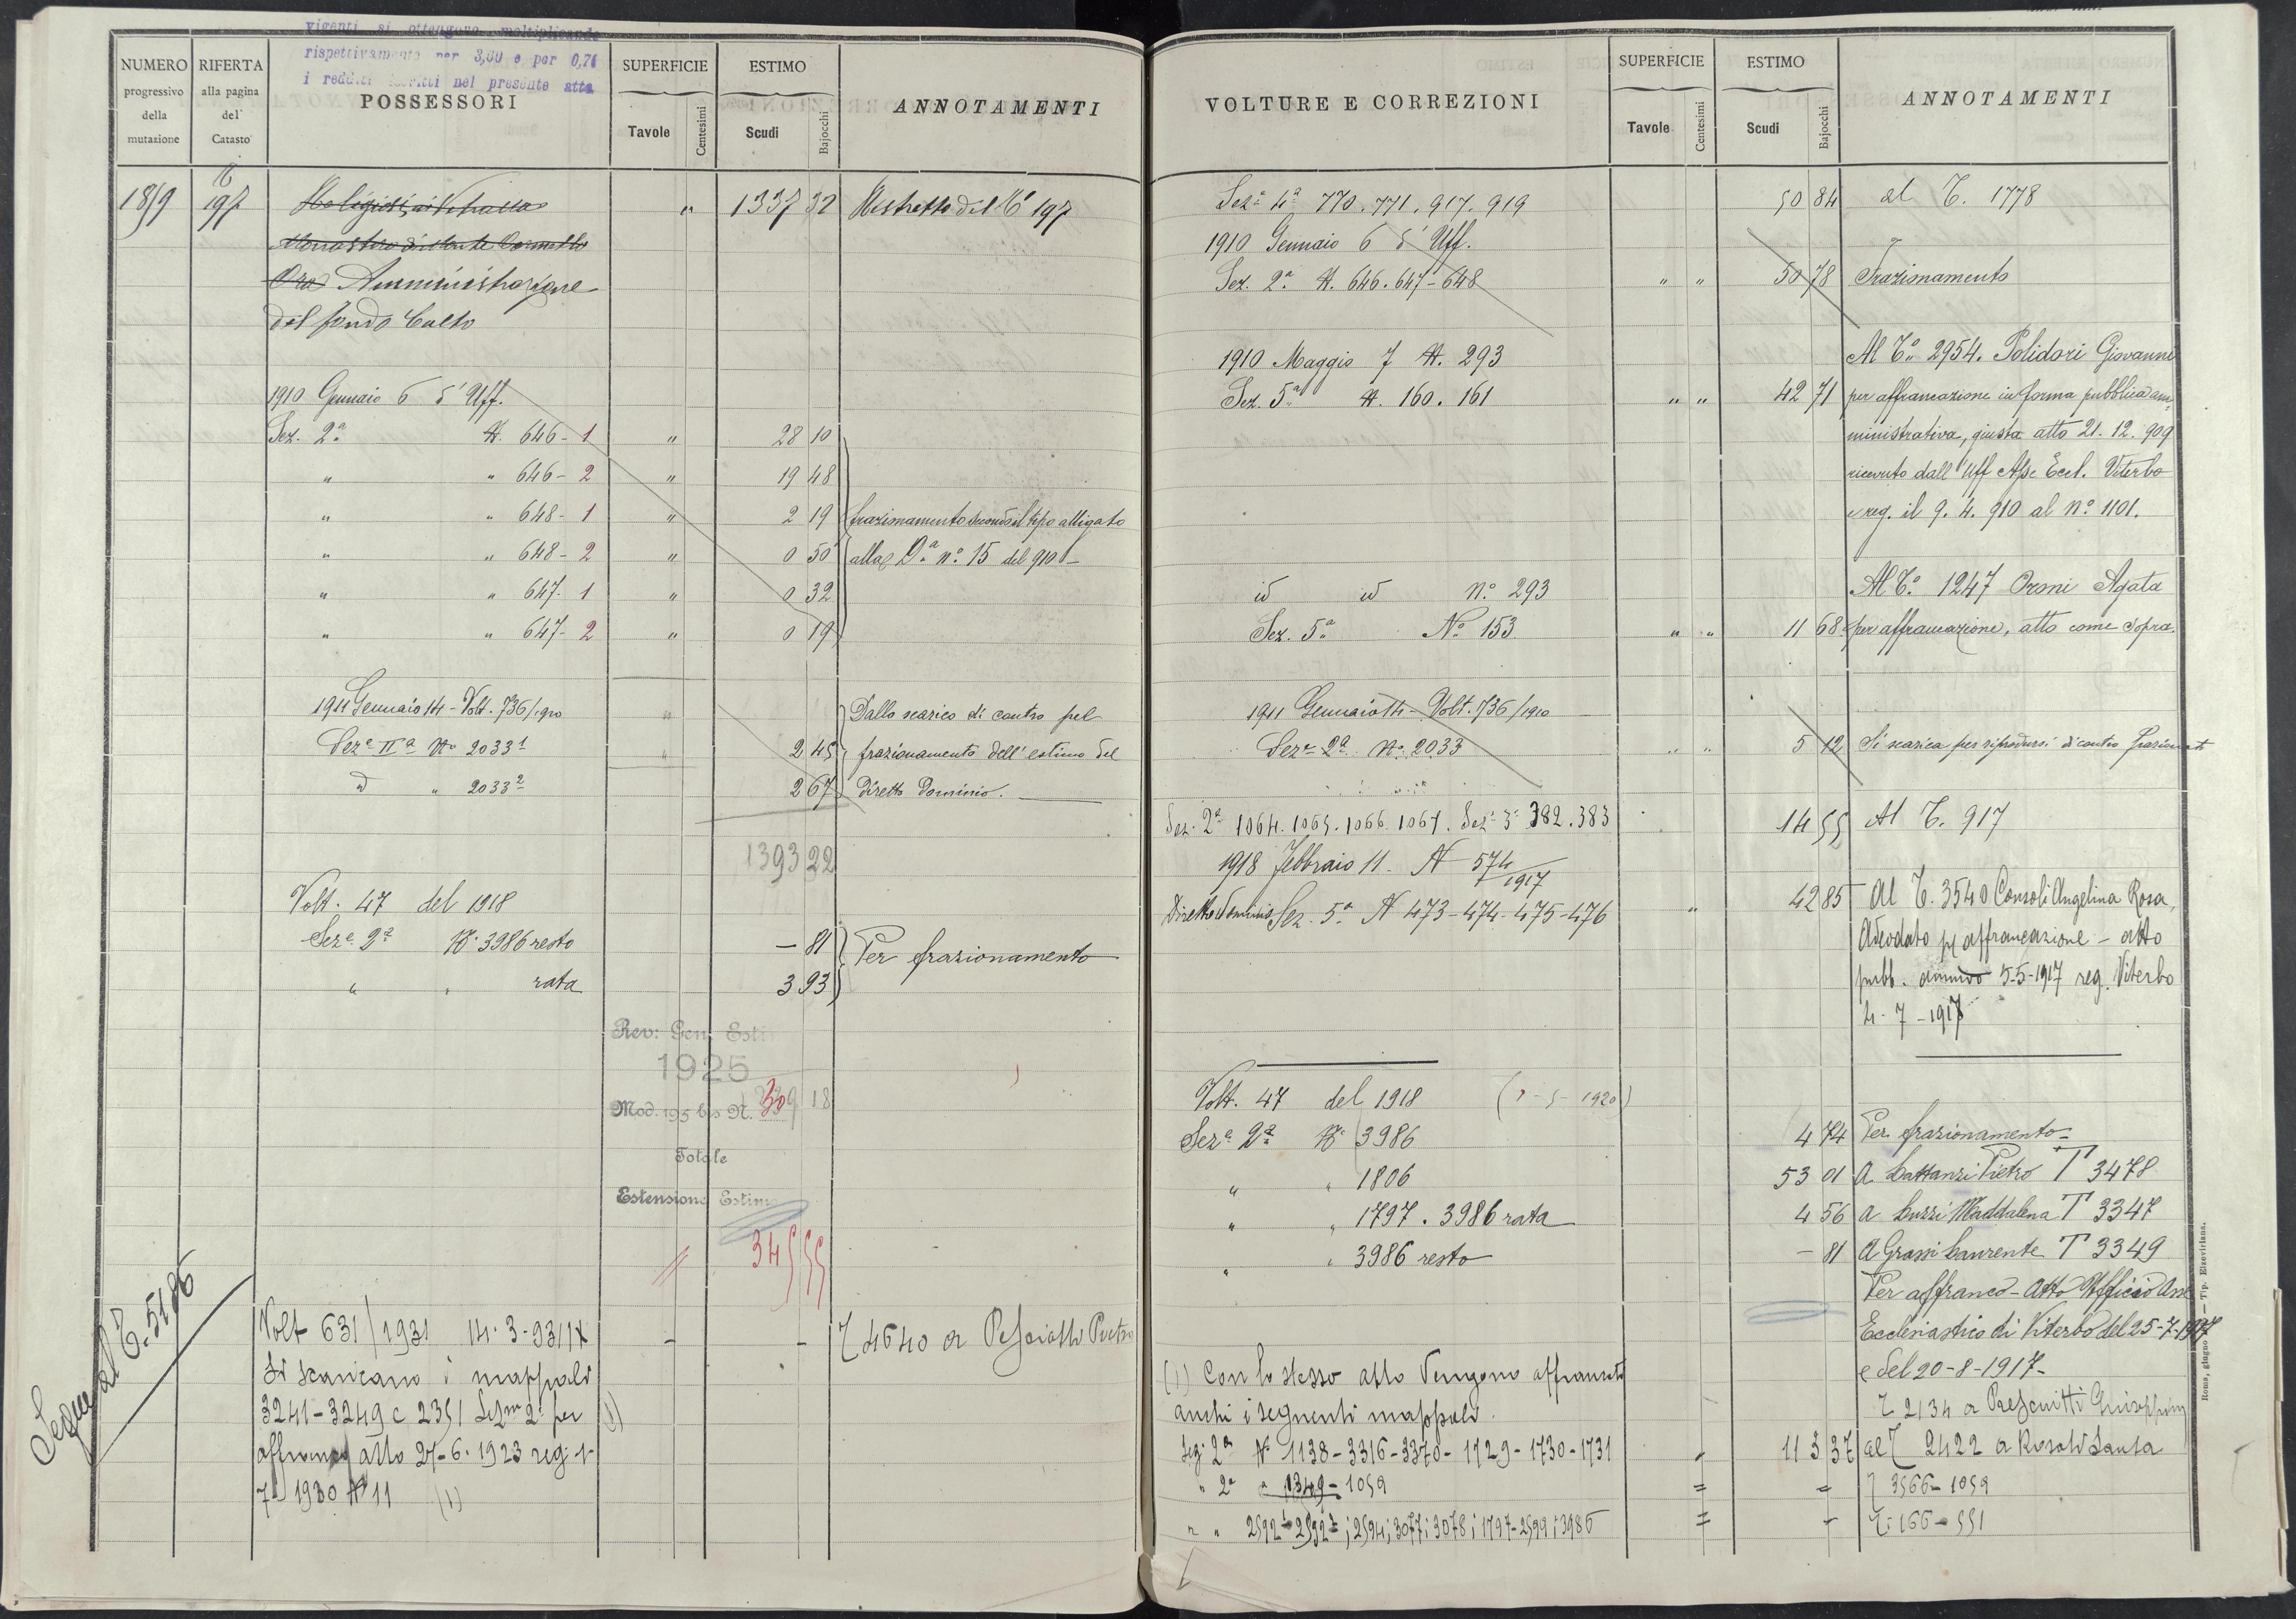 vigenti si ottengono moltiplicando
rispettivamente per 3,60 e per 0,71
i redditi iscritti nel presente atto
NUMERO
progressivo
della
mutazione
RIFERTA
alla pagina
del
Catasto
POSSESSORI
SUPERFICIE
Tavole
Centesimi
ESTIMO
Scudi
Bajocchi
ANNOTAMENTI
1859 197 " 1337 32 Ristretto del C.o 197
Monastero di Monte Carmello
Ora Amministrazione
del fondo Culto
1910 Gennaio 6 d'Uff.
Sez. 2a N. 646-1 " 28 10
" " 646-2 " 19 48
" " 648-1 " 2 19 frazionamento secondo il tipo alligato
" " 648-2 " 0 50 alla D.a n.o 15 del 910
" " 647-1 " 0 32
" " 647-2 " 0 19
1911 Gennaio 14 - Volt. 736/1910 Dallo scarico di contro pel
Sez.e IIa No 2033 1 2 45 frazionamento dell'estimo del
id " 2033 2 2 67 diretto Dominio.
1393 22
Volt. 47 del 1918
Sez.e 2a N. 3986 resto - 81 Per frazionamento
" " rata 3 93
Rev: Gen. Esti
1925
Mod. 195 bis N. 30
18
Totale
Estensione Estimo
// 345 55
Segue al T. 5186
Volt 631/1931 14.3.931 IX - - T 4640 a Pesciotti Pietro
Si scaricano i mappali
3241-3249 e 2351 Sezne 2a per (1)
affranco atto 27-6-1923 reg. 1-
7 1930 N 11 (1)
VOLTURE E CORREZIONI
SUPERFICIE
Tavole
Centesimi
ESTIMO
Scudi
Bajocchi
ANNOTAMENTI
Sez.e 4a 770.771.917.919 50 84 al T. 1778
1910 Gennaio 6 d'Uff.
Sez. 2a N. 646.647-648 " " 50 78 Frazionamento
1910 Maggio 7 N. 293 Al T.o 2954. Polidori Giovanni
Sez. 5a N. 160. 161 " " 42 71 per affrancazione in forma pubblica am-
ministrativa, giusta atto 21.12.909
ricevuto dall'Uff Asse Eccl. Viterbo
e reg. il 9.4.910 al n.o 1101.
id id n.o 293 Al T.o 1247 Orsni Agata
Sez. 5a No 153 " " 11 68 per affrancazione, atto come sopra.
1911 Gennaio 14 - Volt. 736/1910
Sez.e 2a No 2033 " " 5 12 Si scarica per riprodursi di contro frazionato
Sez. 2a 1064.1065.1066.1067. Sez.e 3a 382.383 14 55 Al T. 917
1918 Febbraio 11. N 574/1917
Diretto dominio Sez. 5a N 473-474-475-476 " 42 85 Al T. 3540 Consoli Angelina Rosa,
Adeodato per affrancazione - atto
pubb. 5-5-1917 reg. Viterbo
4-7-1917
Volt. 47 del 1918 (1-5-1920)
Sez.e 2a N. 3986 4 74 Per frazionamento
" " 1806 53 01 A Lattanzi Pietro T 3478
" " 1797. 3986 rata 4 56 a Luzzi Maddalena T 3347
" " 3986 resto - 81 A Grassi T 3349
Per affranco - Atto Ufficio Asse
Ecclesiastico di Viterbo del 25-7-1917
e del 20-8-1917-
(1) Con lo stesso atto vengono affrancati T 2134 a
anche i seguenti mappali
Sez. 2a No 1138-3316-3370-1729-1730-1731 11 3 37 al T 2422 a Rosati Santa
" 2a " 1349-1059 = = T 3566-1059
" " 2592 1-2592 2; 2594; 3077; 3078; 1797-2599; 3986 = - T. 166-551
Roma, giugno — Tip. Elzeviriana.